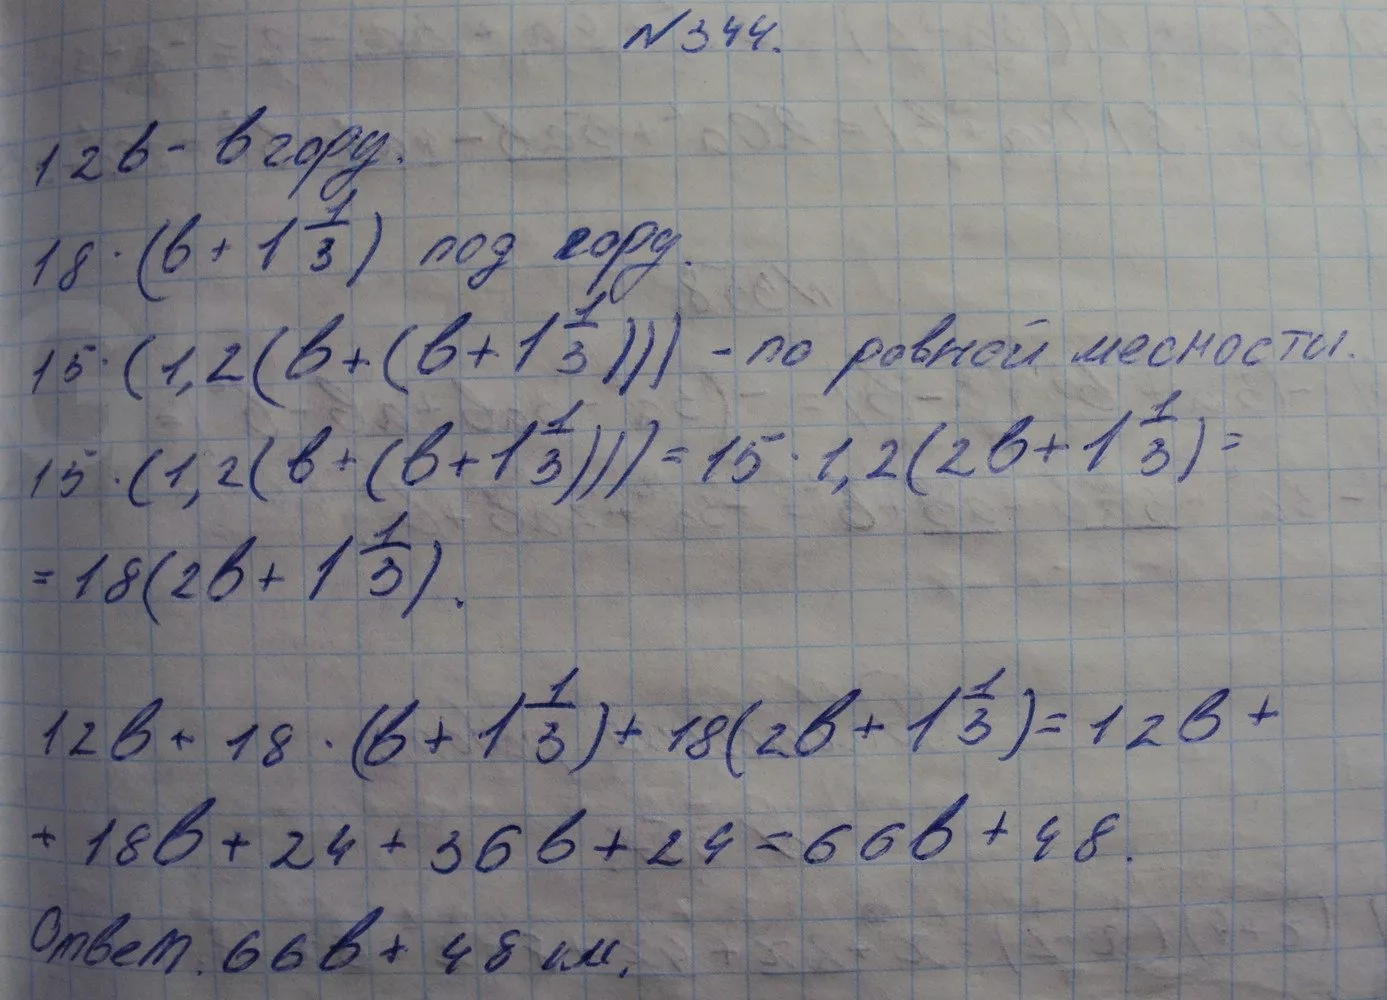 №344.
12в - в гору.
18·(в + 1 1/3) под гору.
15·(1,2(в+(в+1 1/3))) - по ровной месности.
15·(1,2(в+(в+1 1/3))) = 15·1,2(2в+1 1/3) =
= 18(2в+ 1 1/3).
12в + 18·(в+1 1/3)+18(2в+1 1/3)=12в+
+ 18в+24+36в+24=66в+48.
Ответ. 66в+48 км.